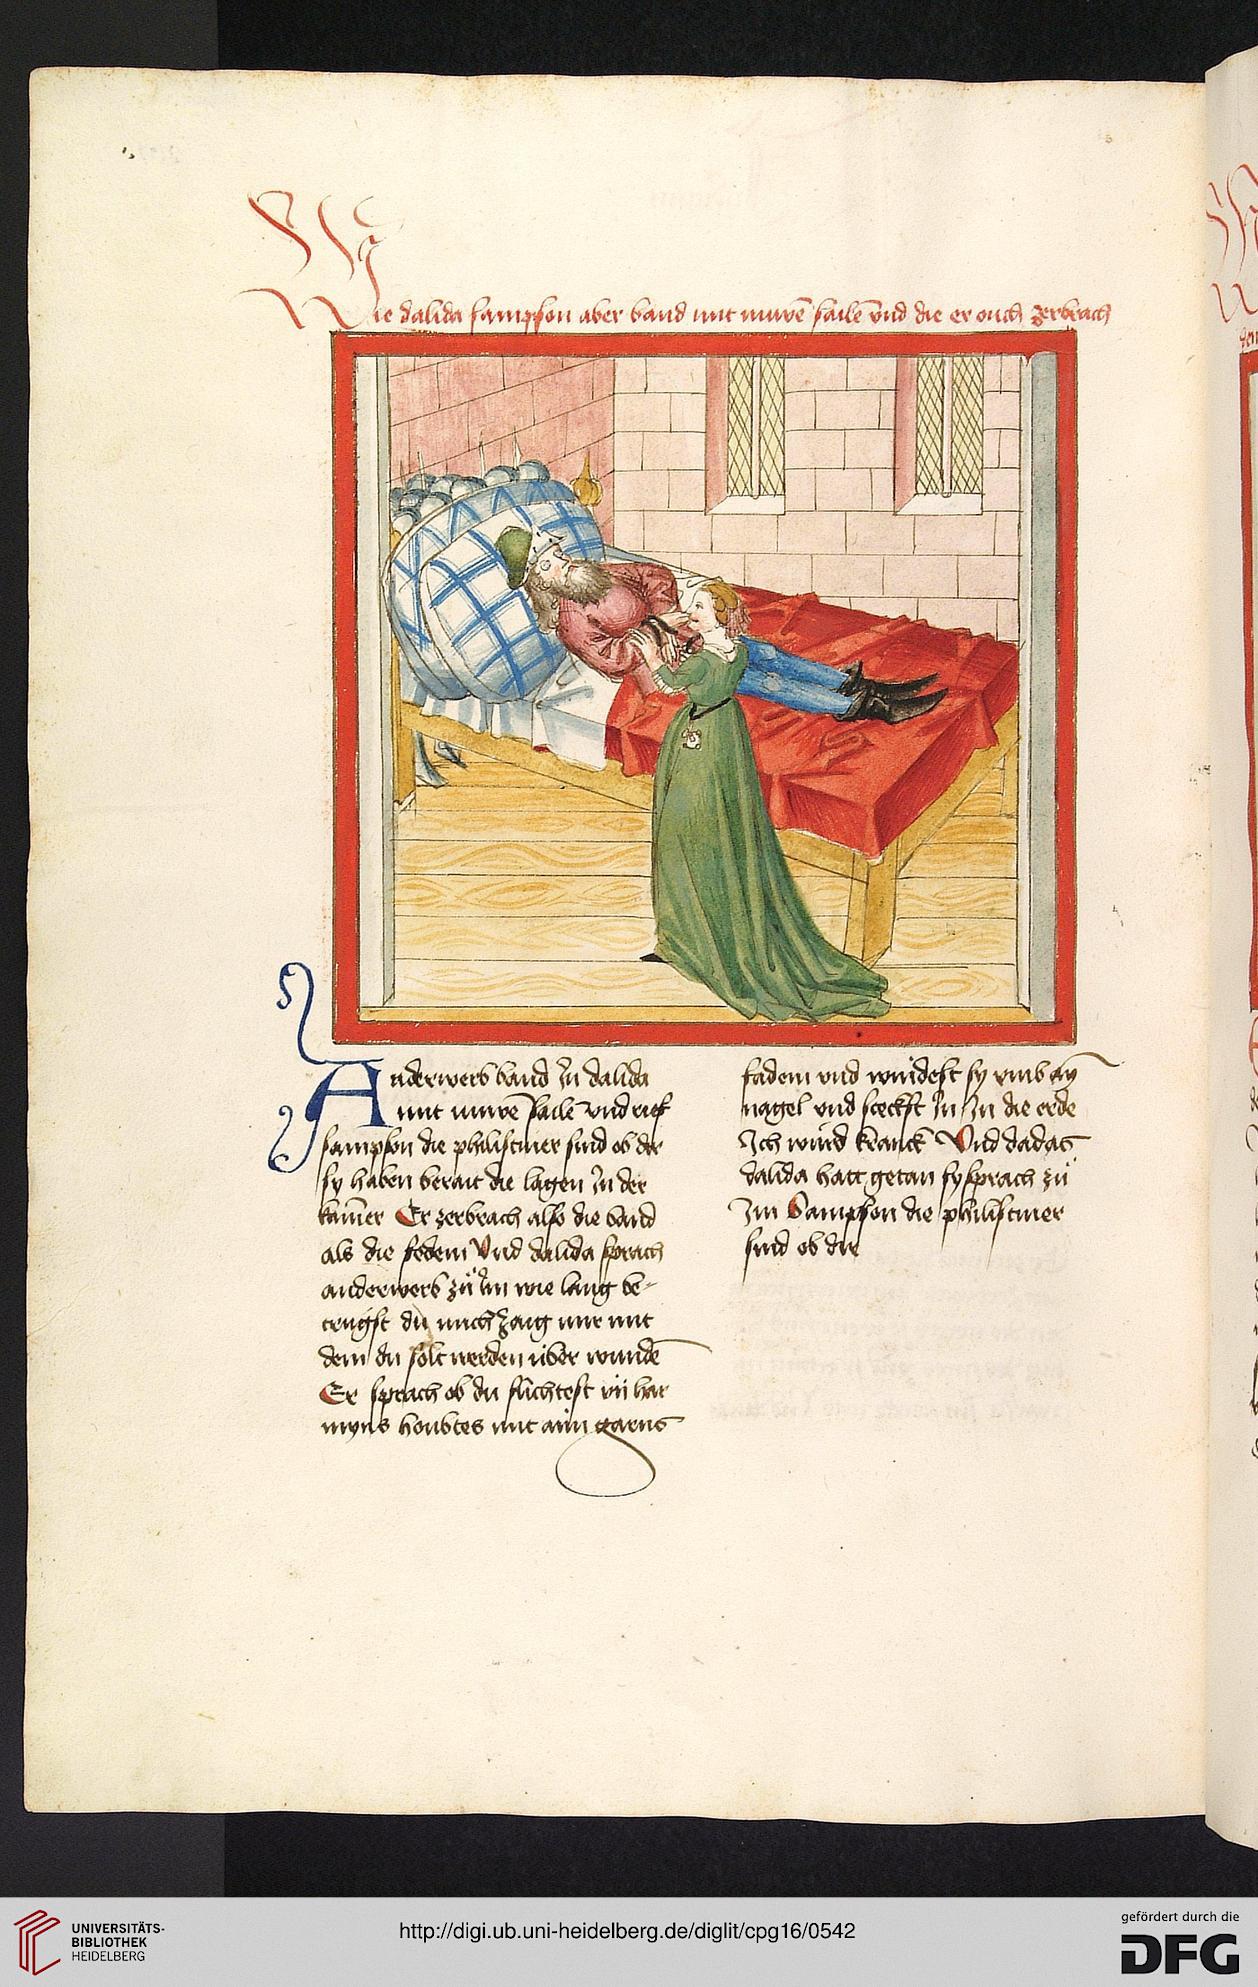 Wie dalida sampson aber band mit nuwē sailē vnd die er ouch zerbrach
Anderwerb band Jn dalida
mit nuwē sailē vnd rief
sampson die philistiner sind ob dir
sy haben berait die lagen Jn der
kam̄er Er zerbrach also die band
als die fedem Vnd dalida sprach
anderwerb zů Jm wie lang be-
trugst du mich Zaig mir mit
dem du solt werden v̈ber wundē
Er sprach ob du flichtest vij har
myns houbtes mit aim garns
fadem vnd windest sy vmb ain
nagel vnd steckst Jn Jn die erde
Jch wird kranck Vnd do das
dalida hatt getan sy sprach zů
Jm Sampson die philistiner
sind ob dir
UNIVERSITÄTS-
BIBLIOTHEK
HEIDELBERG
http://digi.ub.uni-heidelberg.de/diglit/cpg16/0542
gefördert durch die
DFG